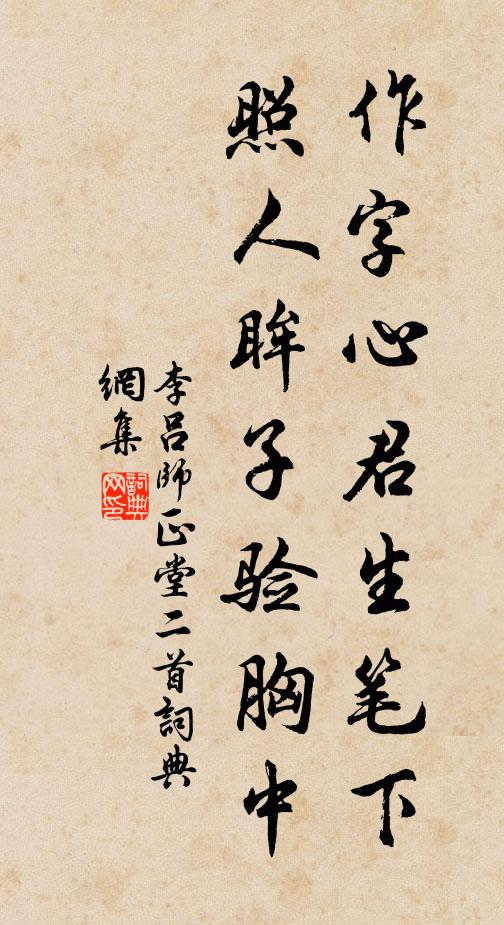 作字心君生笔下
照人眸子验胸中
李吕師正堂二首詞典
網集
詞典
网印